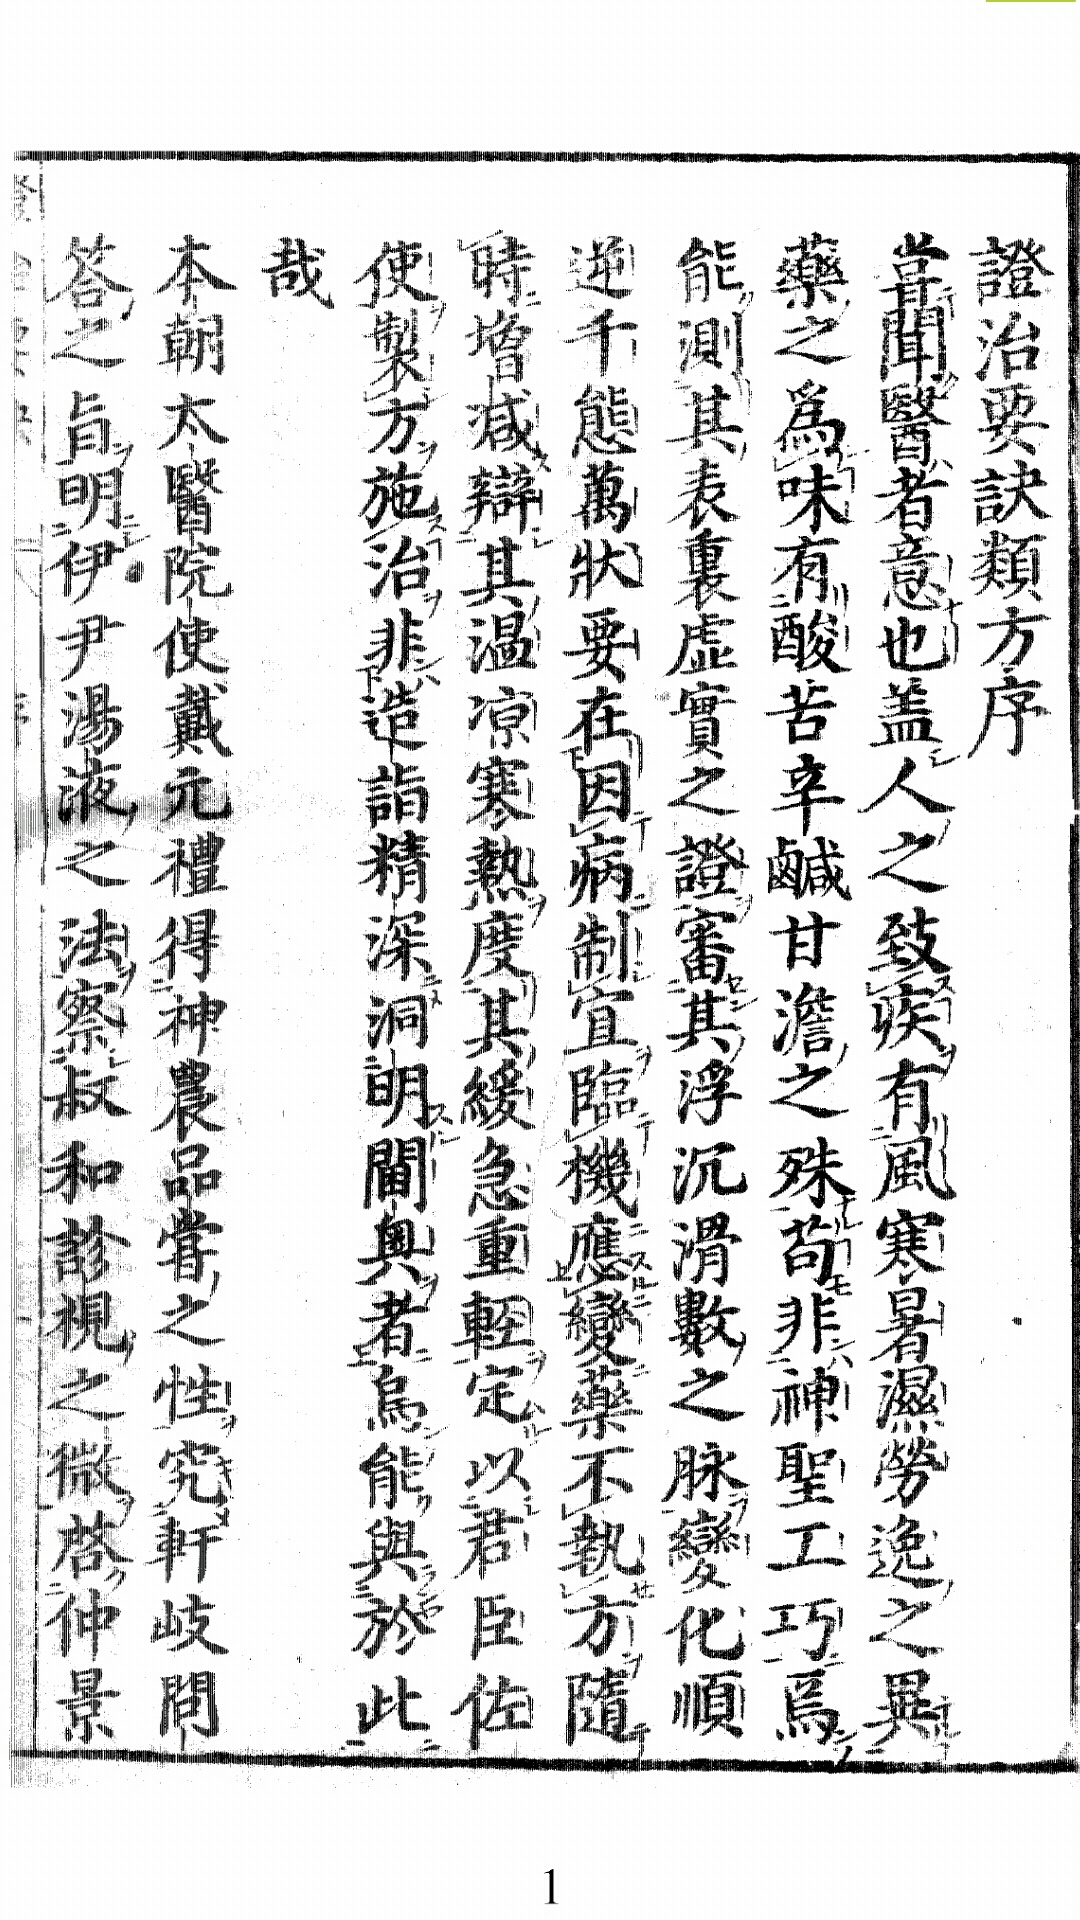 證治要訣類方序
嘗聞醫者意也盖人之致疾有風寒暑濕勞逸之異
藥之爲味有酸苦辛鹹甘澹之殊苟非神聖工巧焉
能測其表裏虛實之證審其浮沉滑數之脉變化順
逆千態萬狀要在因病制宜臨機應變藥不執方隨
時增减辯其温凉寒熱度其緩急重輕定以君臣佐
使製方施治非造詣精深洞明閫奥者烏能與於此
哉
本朝太醫院使戴元禮得神農品嘗之性究軒岐問
答之旨明伊尹湯液之法察叔和診視之微啓仲景
1